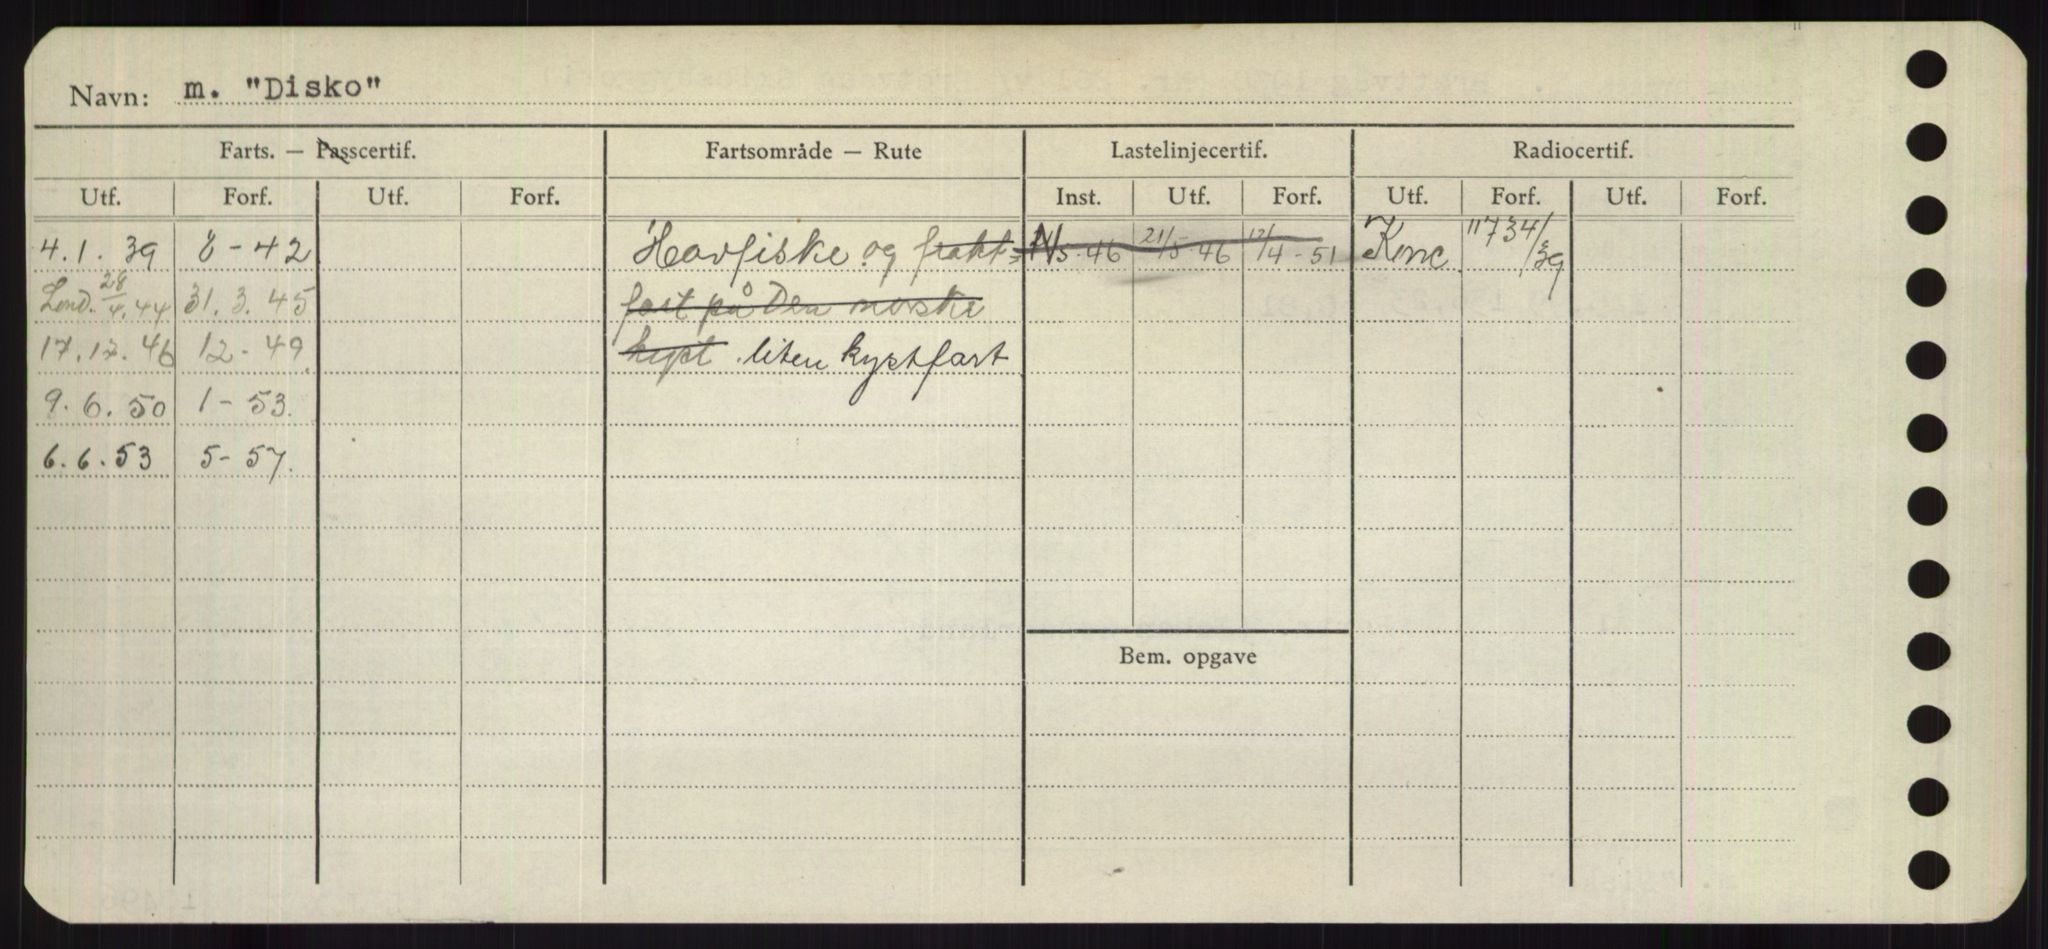 Navn: m. "Disko"
Farts. — Passcertif. Fartsområde — Rute Lastelinjecertif. Radiocertif.
Utf. Forf. Utf. Forf. Inst. Utf. Forf. Utf. Forf. Utf. Forf.
4.1.39 8-42 Havfiske og frakt= 5.46 21/5-46 12/4-51 Konc 11734/39
Lond. 28/4.44 31.3.45 fart på den norske
17.12.46 12-49. kyst. liten kystfart
9.6.50 1-53.
6.6.53 5-57.
Bem. opgave